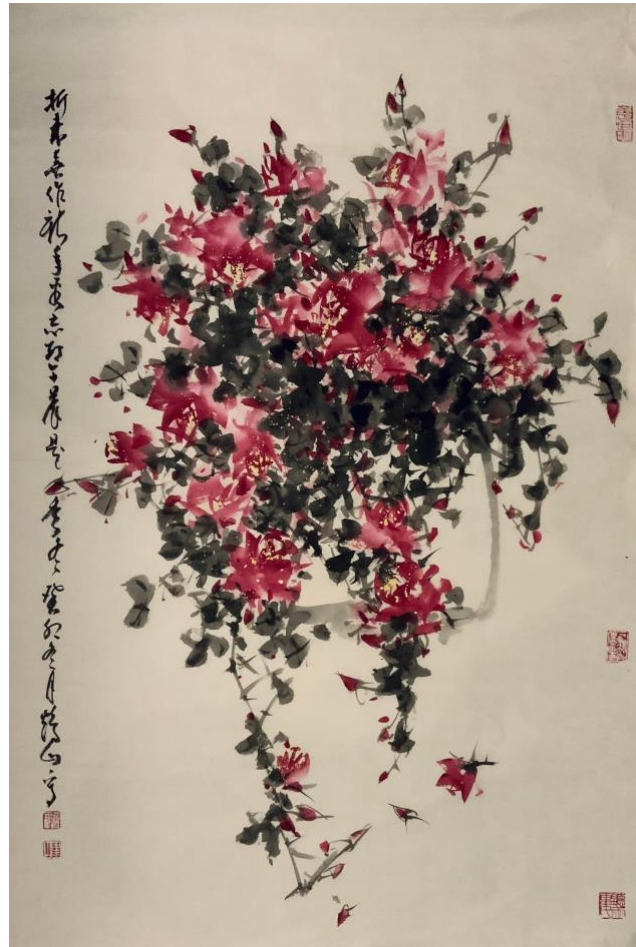 折来喜作新年看忘却今晨是季冬癸卯冬月鹤山写